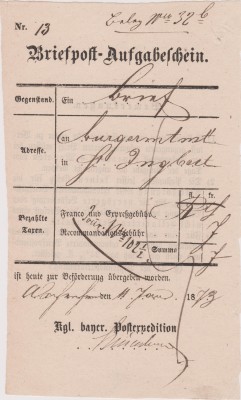 Nr. 13
Beleg Nro 32 b
Briefpost-Aufgabeschein.
Gegenstand. Ein Brief
Adresse. an Bürgermstamt
in St. Ingbert
fl. kr.
Bezahlte Taxen.
Franco und Expreßgebühr
Recommandationsgebühr
Summe 7
ist heute zur Beförderung übergeben worden.
den 11 1873
Kgl. bayer. Postexpedition